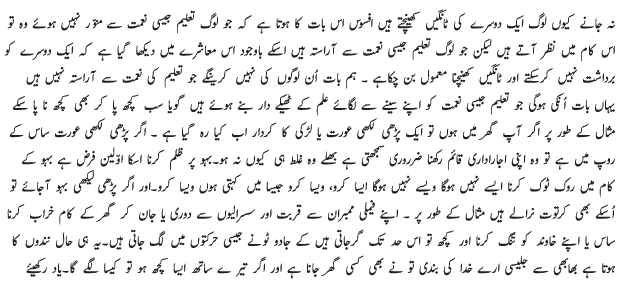 نہ جانے کیوں لوگ ایک دوسرے کی ٹانگیں کھینچتے ہیں افسوس اس بات کا ہوتا ہے کہ جو لوگ تعلیم جیسی نعمت سے منوّر نہیں ہوئے وہ تو
اس کام میں نظر آتے ہیں لیکن جو لوگ تعلیم جیسی نعمت سے آراستہ ہیں اسکے باوجود اس معاشرے میں دیکھا گیا ہے کہ ایک دوسرے کو
برداشت نہیں کرسکتے اور ٹانگیں کھینچنا معمول بن چکاہے ۔ ہم بات اُن لوگوں کی نہیں کرینگے جو تعلیم کی نعمت سے آراستہ نہیں ہیں
یہاں بات اُنکی ہوگی جو تعلیم جیسی نعمت کو اپنے سینے سے لگائے علم کے ٹھیکے دار بنے ہوئے ہیں گویا سب کچھ پا کر بھی کچھ نا پاسکے
مثال کے طور پر اگر آپ گھر میں ہوں تو ایک پڑھی لکھی عورت یا لڑکی کا کردار اب کیا رہ گیا ہے ۔ اگر پڑھی لکھی عورت ساس کے
روپ میں ہے تو وہ اپنی اجاراداری قائم رکھنا ضروری سمجھتی ہے بھلے وہ غلط ہی کیوں نہ ہو۔بہو پر ظلم کرنا اسکا اوّلین فرض ہے بہو کے
کام میں روک ٹوک کرنا ایسے نہیں ہوگا ویسے نہیں ہوگا ایسا کرو، ویسا کرو جیسا میں کہتی ہوں ویسا کرو۔اور اگر پڑھی لیکھی بہو آجائے تو
اُسکے بھی کرتوت نرالے ہیں مثال کے طور پر ۔ اپنے فیملی ممبران سے قربت اور سسرالیوں سے دوری یا جان کر گھر کے کام خراب کرنا
ساس یا اپنے خاوند کو تنگ کرنا اور کچھ تو اس حد تک گرجاتی ہیں کے جادو ٹونے جیسی حرکتوں میں لگ جاتی ہیں۔یہ ہی حال نندوں کا
ہوتا ہے بھابھی سے جلیسی ارے خدا کی بندی تو نے بھی کسی گھر جانا ہے اور اگر تیرے ساتھ ایسا کچھ ہو تو کیسا لگے گا۔یاد رکھیئے